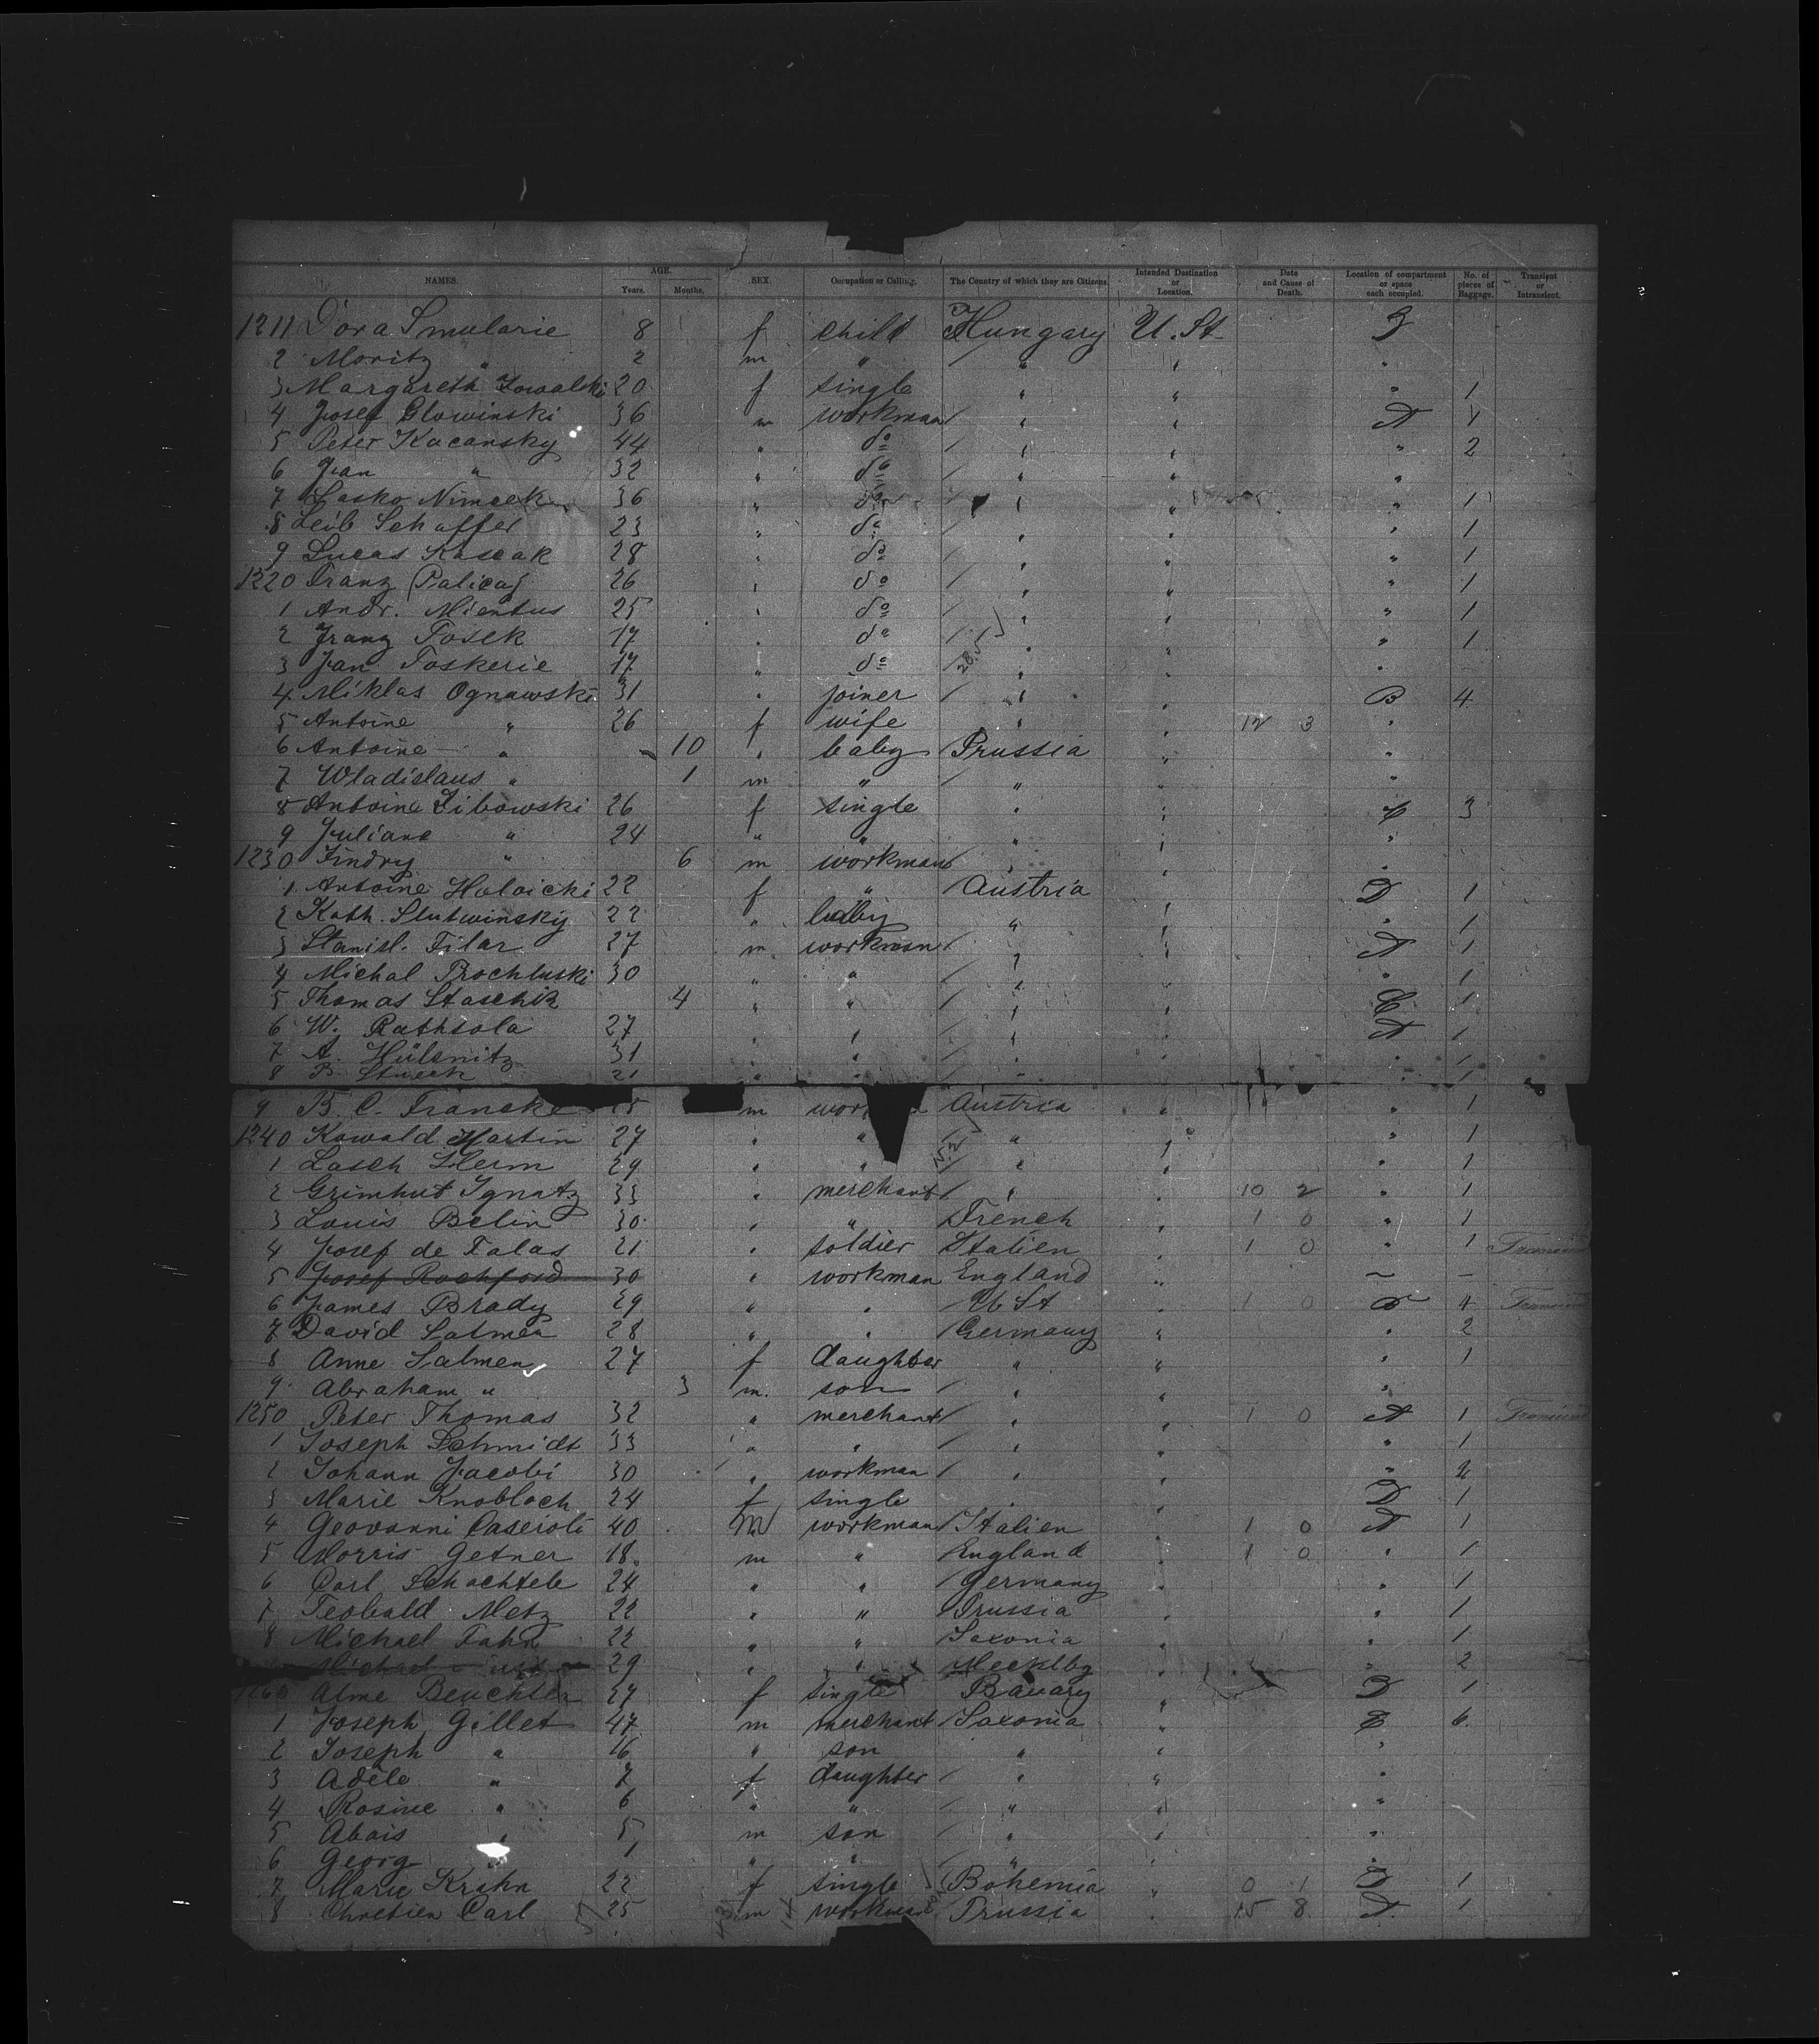 NAMES. AGE. Years. Months. SEX. Occupation or Calling. The Country of which they are Citizens. Intended Destination or Location. Date and Cause of Death. Location of compartment or space each occupied. No. of pieces of Baggage. Transient or Intransient.
1211 Dora Smularie 8 f child Hungary U. St
2 Moritz " 2 m " " "
3 Margareth 20 f single " " " 1
4 Josef Glowinski 36 m workman " " A 1
5 Peter Kacansky 44 " do " " " 2
6 Jan " 32 " do " " "
7 Lasko Nimcek 36 " do " " " 1
8 Leib Schaffer 23 " do " " " 1
9 Lucas Kascak 28 " do " " " 1
1220 Franz Palica 26 " do " " " 1
1 Andr. Mientus 25 " do " " " 1
2 Franz Tosek 17 " do " " " 1
3 Jan Toskerie 17 " do " " " -
4 Miklas Ognawski 31 " joiner " " B 4
5 Antoine " 26 f wife " " 12 3 "
6 Antoine " 10 " baby Prussia " "
7 Wladislaus " 1 m " " " "
8 Antoine Zibowski 26 f single " " C 3
9 Juliane " 24 " " " " "
1230 Findry " 6 m workman " " "
1 Antoine 22 f " Austria " D 1
2 Kath. Slutwinsky 22 " " " " 1
3 Stanisl. Filar 27 m workman " " A 1
4 Michal Prochluski 30 " " " " " 1
5 Thomas Staschik 4 " " " " C 1
6 W. Rathsola 27 " " " " A 1
7 A. Hülsnitz 31 " " " " " 1
8 B. Stueck 21 " " " " " 1
9 B. C. Francke 25 m Austria " " 1
1240 Kawald Martin 27 " " " " " 1
1 Lasch Herm 29 " " " " " 1
2 Grimhut Ignatz 33 " merchant " " 10 2 " 1
3 Louis Belin 30 " " French " 1 0 " 1
4 Josef de Falas 21 " soldier Italien " 1 0 " 1
5 Josef Rochford 30 " workman England " - -
6 James Brady 29 " " U St " 1 0 B 4
7 David Salmen 28 " " Germany " " 2
8 Anne Salmen 27 f daughter " " " 1
9 Abraham " 3 m. son " " "
1250 Peter Thomas 32 " merchant " " 1 0 A 1
1 Joseph Schmidt 33 " " " " " 1
2 Johann Jacobi 30 " workman " " "
3 Marie Knobloch 24 f single " " D 1
4 Geovanni Cascioli 40 M workman Italien " 1 0 A 1
5 Morris Getner 18 m " England " 1 0 " 1
6 Carl Schachtele 24 " " Germany " " 1
7 Teobald Metz 22 " " Prussia " " 1
8 Michael Fahn 22 " " Saxonia " " 1
Michael 29 " " Mecklbg " " 2
1260 Alme Beuchter 27 f single Bavary " D 1
1 Joseph Gillet 47 m merchant Saxonia " 6
2 Joseph " 16 " son " " "
3 Adele " 7 f daughter " " "
4 Rosine " 6 " " " " "
5 Abais " 5 m son " " "
6 Georg " 1 " " " " "
7 Marie Krahn 22 f single Bohemia " 0 1 D 1
8 Chretien Carl 25 m workman Prussia " 15 8 A 1